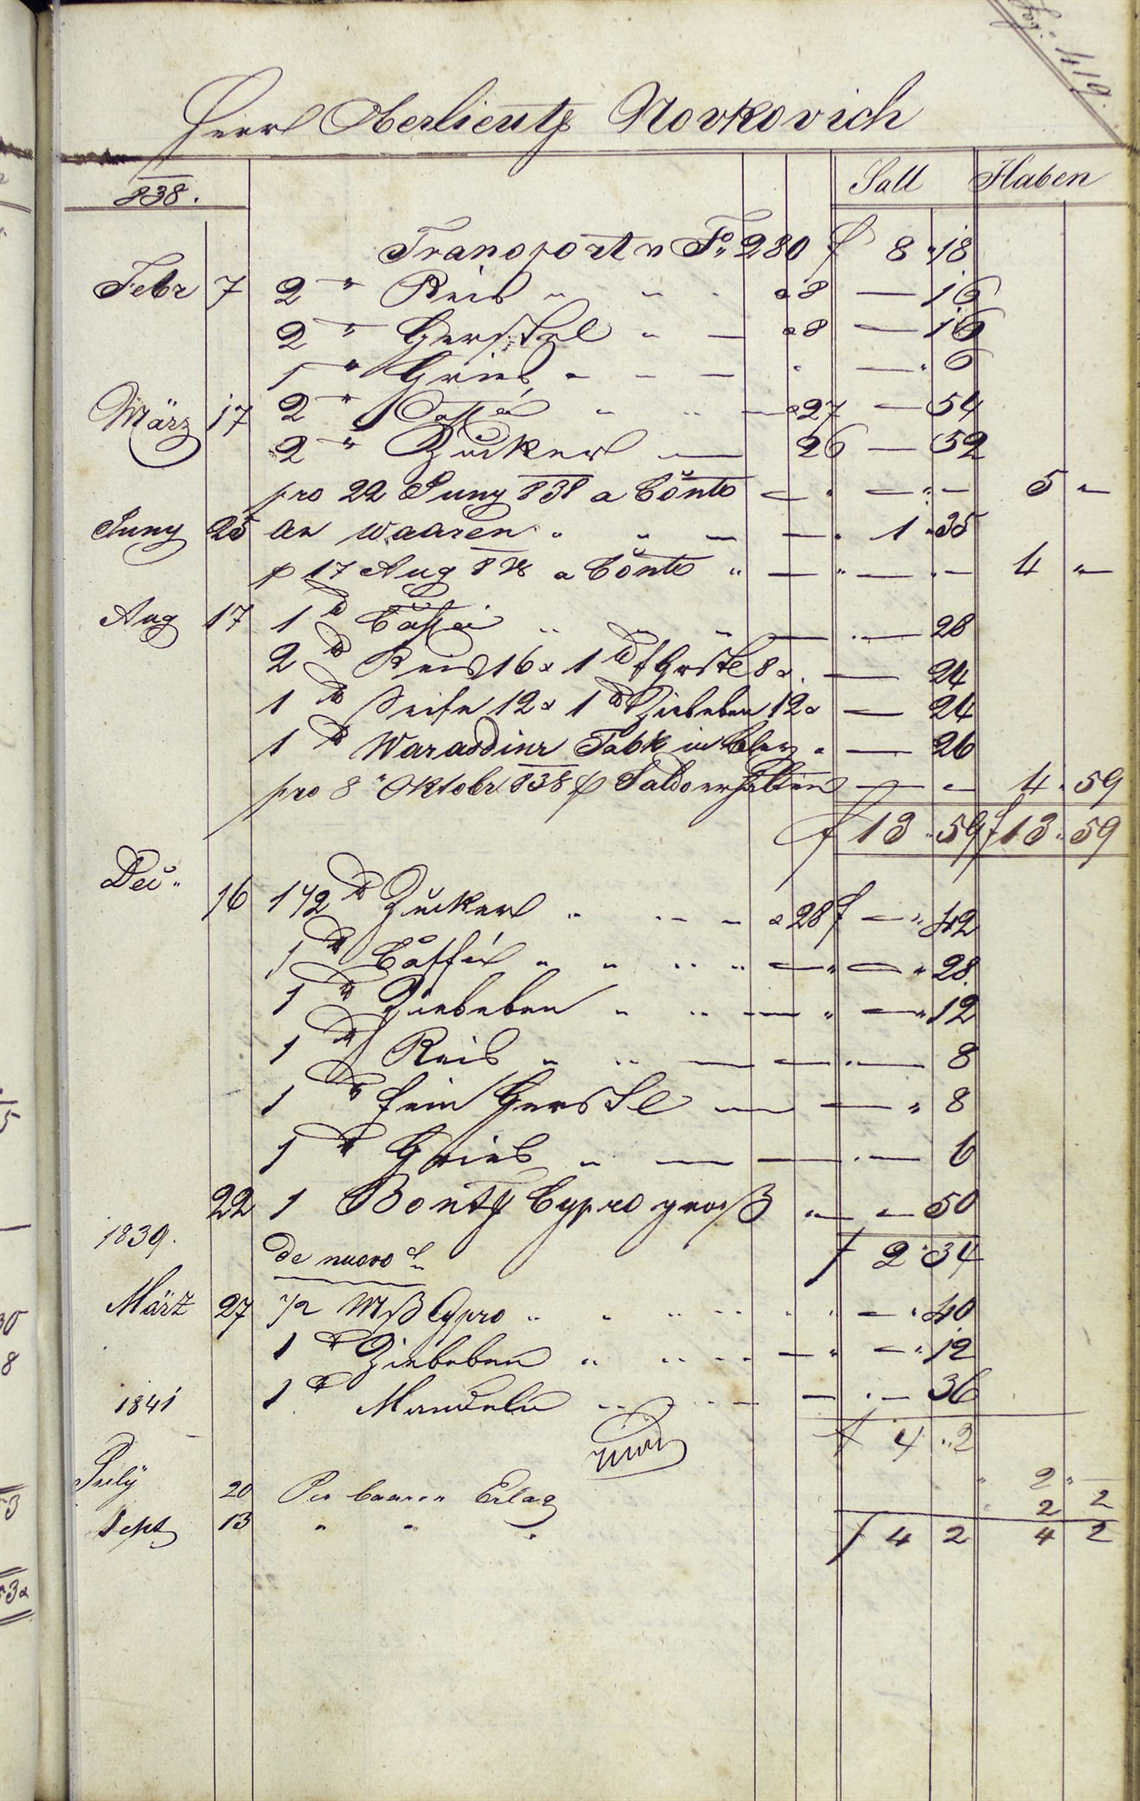 419.
Herr Oberlieut Novkovich
838. Soll Haben
Transport v F° 280 f 8 " 18
Febr 7 2 " Reis " " a 8 — 16
2 " Gerstel " — a 8 — 16
1 " Gries " " — " — " 6
März 17 2 " Caffee " " — a 27 — 54
2 " Zucker — 26 — 52
pro 22 Juny 838 a Conto — " — " — 5 " —
Juny 25 an Waaren " " — — " 1 " 35
p 17 Aug 838 a Conto " — " — " — 4 " —
Aug 17 1 ℔ Caffee " " " — " — 28
2 ℔ Reis 16 x 1 ℔ f Grstl 8 x . — 24
1 ℔ Seife 12 x 1 ℔ Ziebeben 12 x — 24
1 ℔ Warasdinr Tabk in " — 26
pro 8 " Oktobr 838 p Saldo erhalten — " — 4 " 59
f 13 " 59 f 13 " 59
Dec " 16 1 1/2 ℔ Zucker " " — a 28 f — " 42
1 ℔ Caffée " " " " — " — " 28
1 ℔ Ziebeben " " — " — " 12
1 ℔ Reis " " — — " — 8
1 ℔ fein Gerstl — — " 8
1 ℔ Gries " — — " — 6
22 1 Bout Cypro groß " — " — 50
1839. de nuovo f 2 " 34
März 27 1/2 Mß Cypro " " " " " " — " 40
1 ℔ Ziebeben " " " — " — " 12
1 ℔ Mandeln " " — — " — 36
1841 f 4 " 2
July 20 Per baaren Erlag " 2 " —
Sept 13 " " " " 2 2
f 4 2 4 2